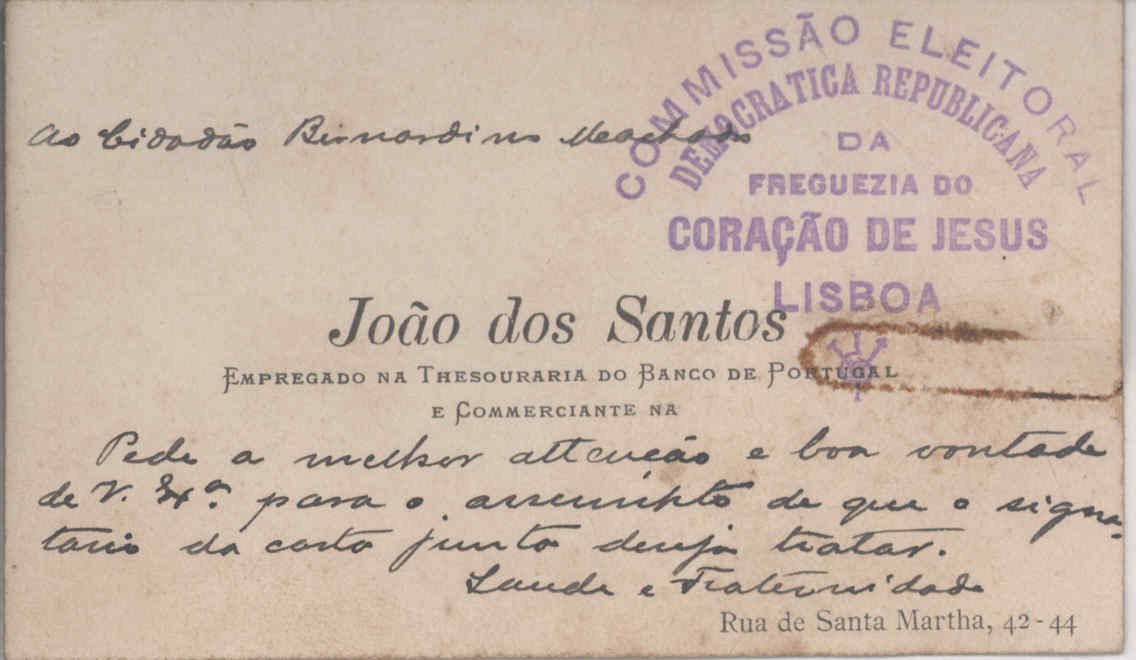 COMMISSÃO ELEITORAL
DEMOCRATICA REPUBLICANA
DA
FREGUEZIA DO
CORAÇÃO DE JESUS
LISBOA
Ao Cidadão Bernardino Machado
João dos Santos
EMPREGADO NA THESOURARIA DO BANCO DE PORTUGAL
E COMMERCIANTE NA
Pede a melhor attenção e boa vontade
de V. Exª. para o assumpto de que o signa-
tario da carta junta deseja tratar.
Saude e Fraternidade
Rua de Santa Martha, 42-44